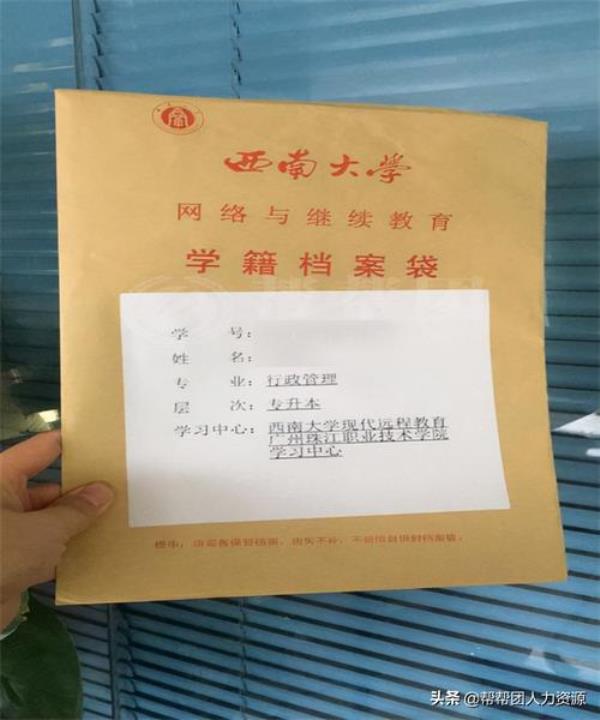 西南大学
网络与继续教育
学籍档案袋
学 号:
姓 名:
专 业: 行政管理
层 次: 专升本
学习中心: 西南大学现代远程教育
广州珠江职业技术学院
学习中心
头条 @帮帮团人力资源